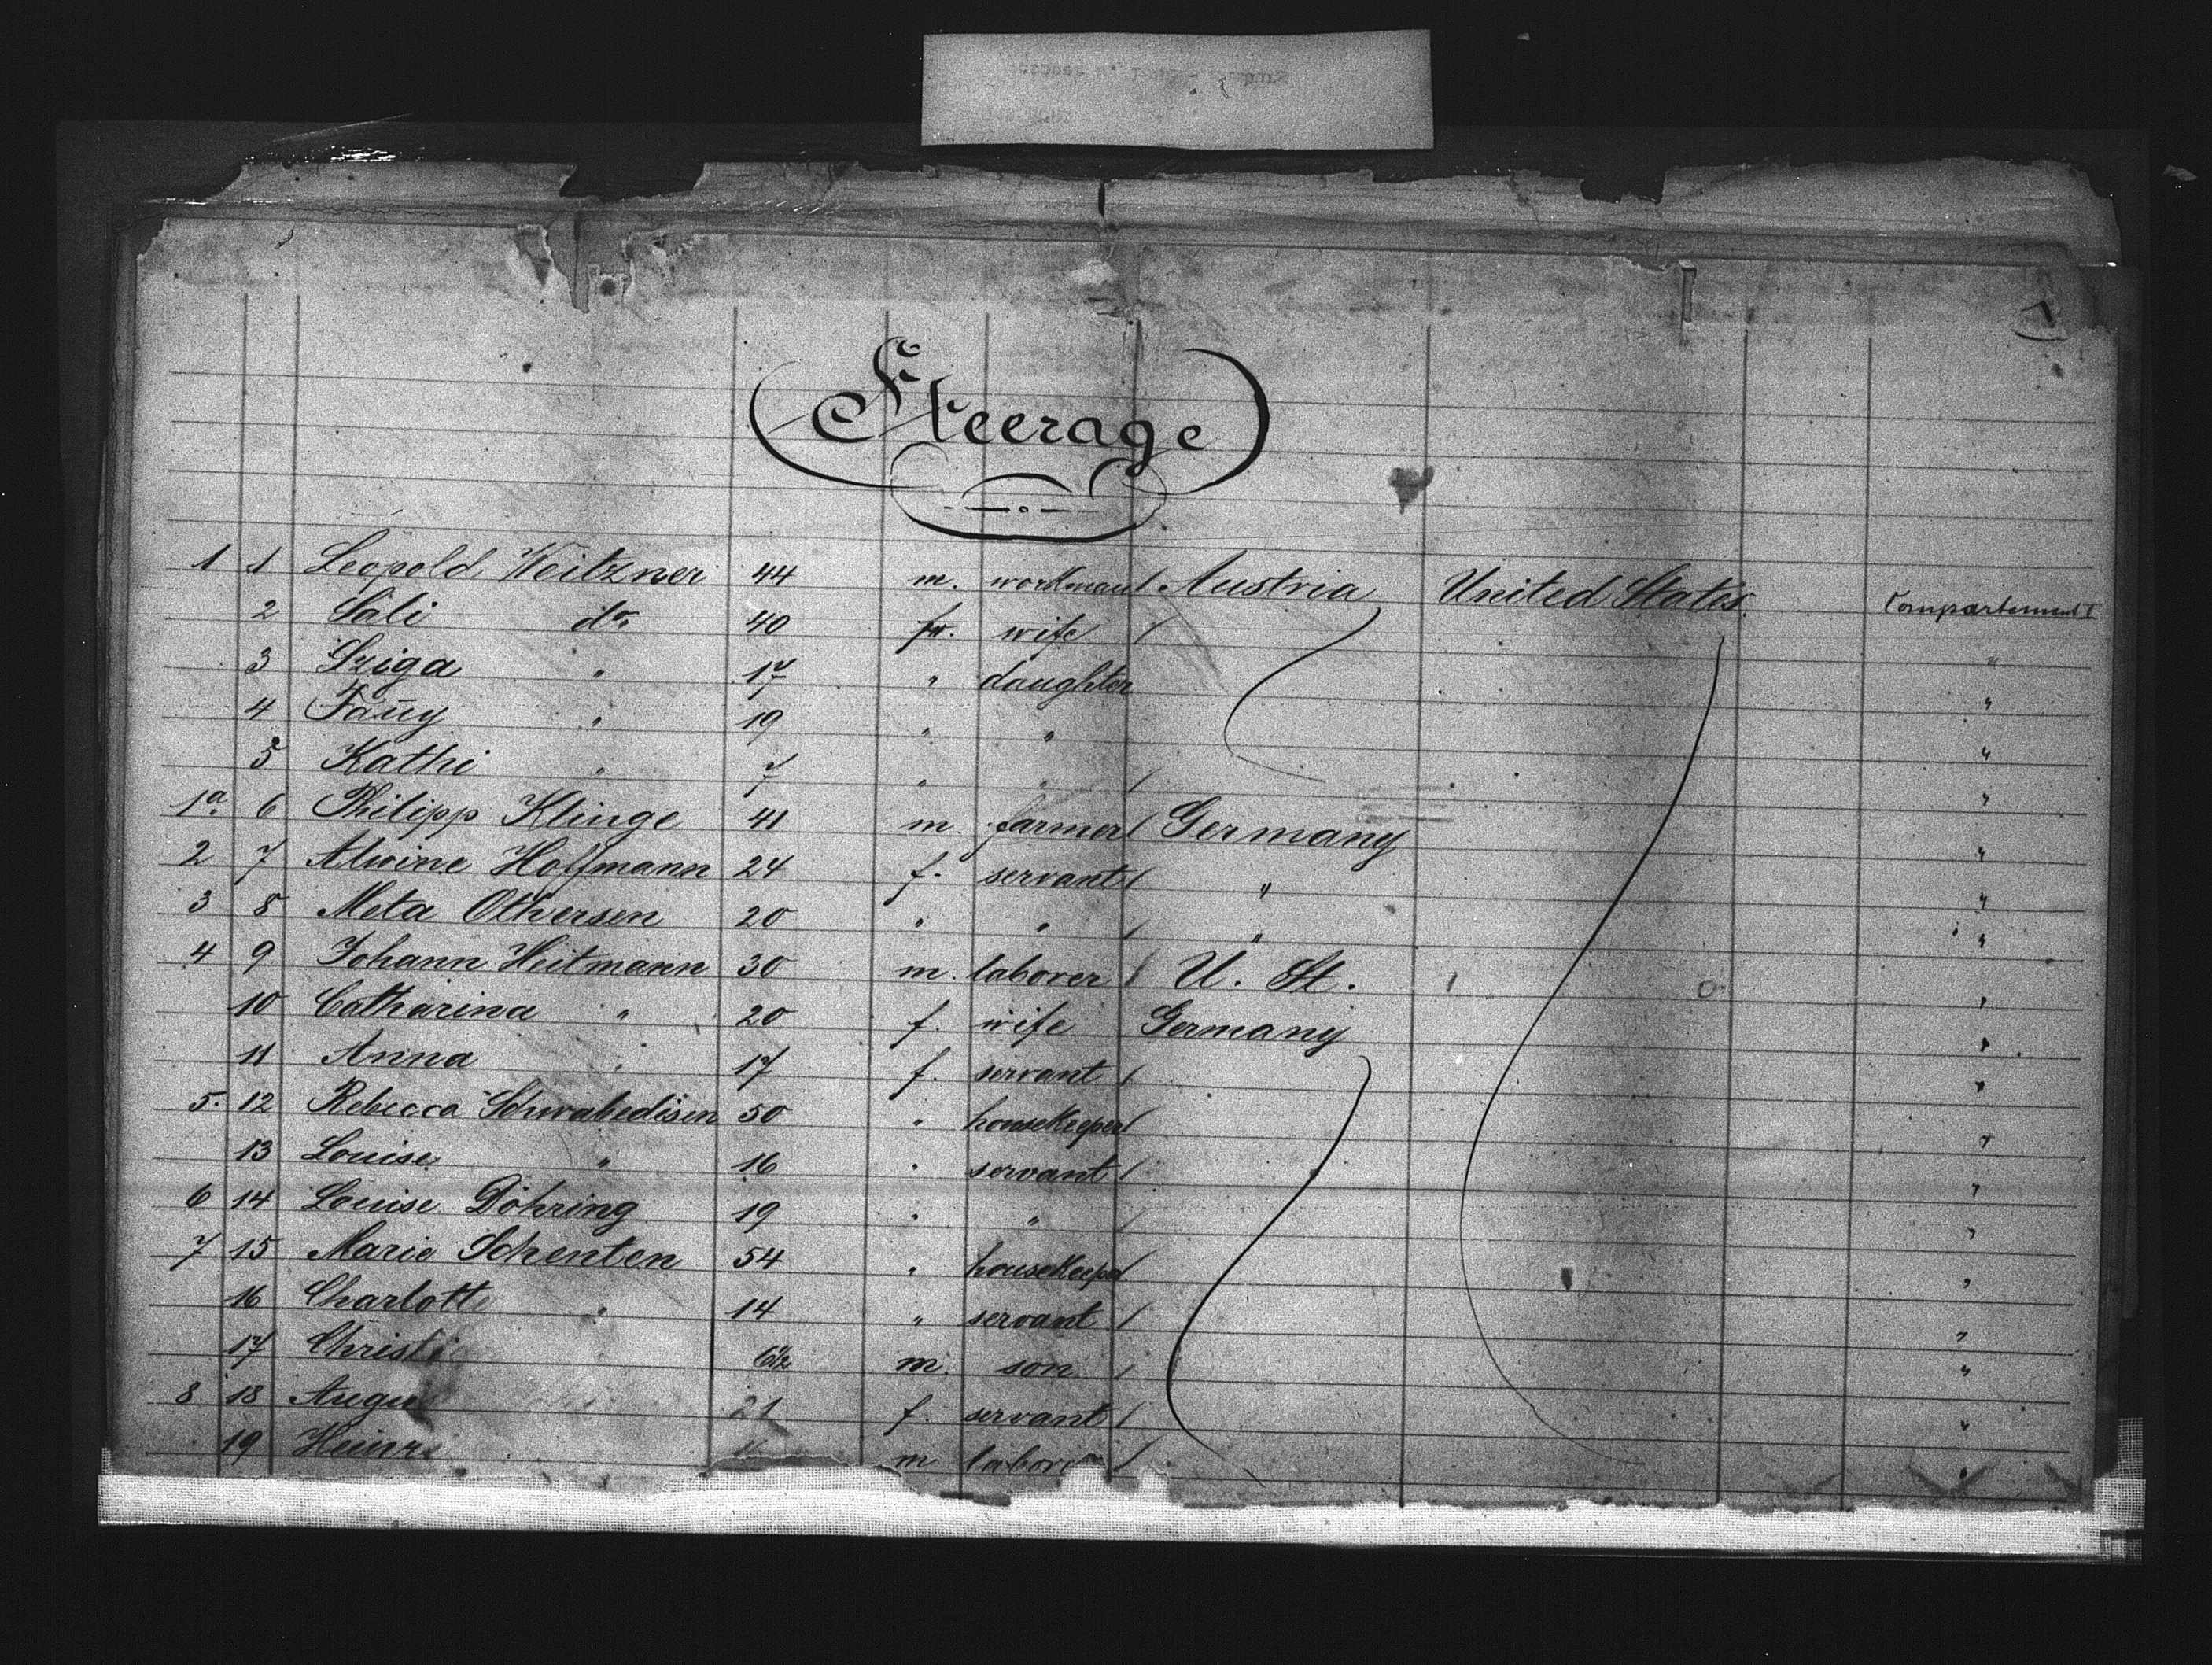 Steerage
1 1 Leopold Weitzner 44 m. workman Austria United States Compartement I
2 Sali do 40 f. wife "
3 Sziga " 17 " daughter "
4 Fañy " 19 " " "
5 Kathi " 7 " " "
1a. 6 Philipp Klinge 41 m farmer Germany "
2 7 Alwine Hoffmann 24 f. servant " "
3 8 Meta Othersen 20 " " " "
4 9 Johann Heitmann 30 m. laborer U. St. "
10 Catharina " 20 f. wife Germany "
11 Anna " 17 f. servant "
5. 12 Rebecca Schwabedisen 50 " housekeeper "
13 Louise " 16 " servant "
6 14 Louise Döhring 19 " " "
7 15 Marie Schenten 54 " housekeeper "
16 Charlotte " 14 " servant "
17 Christi 6 1/2 m. son "
8 18 Augu 21 f. servant "
19 Heinr m labore "